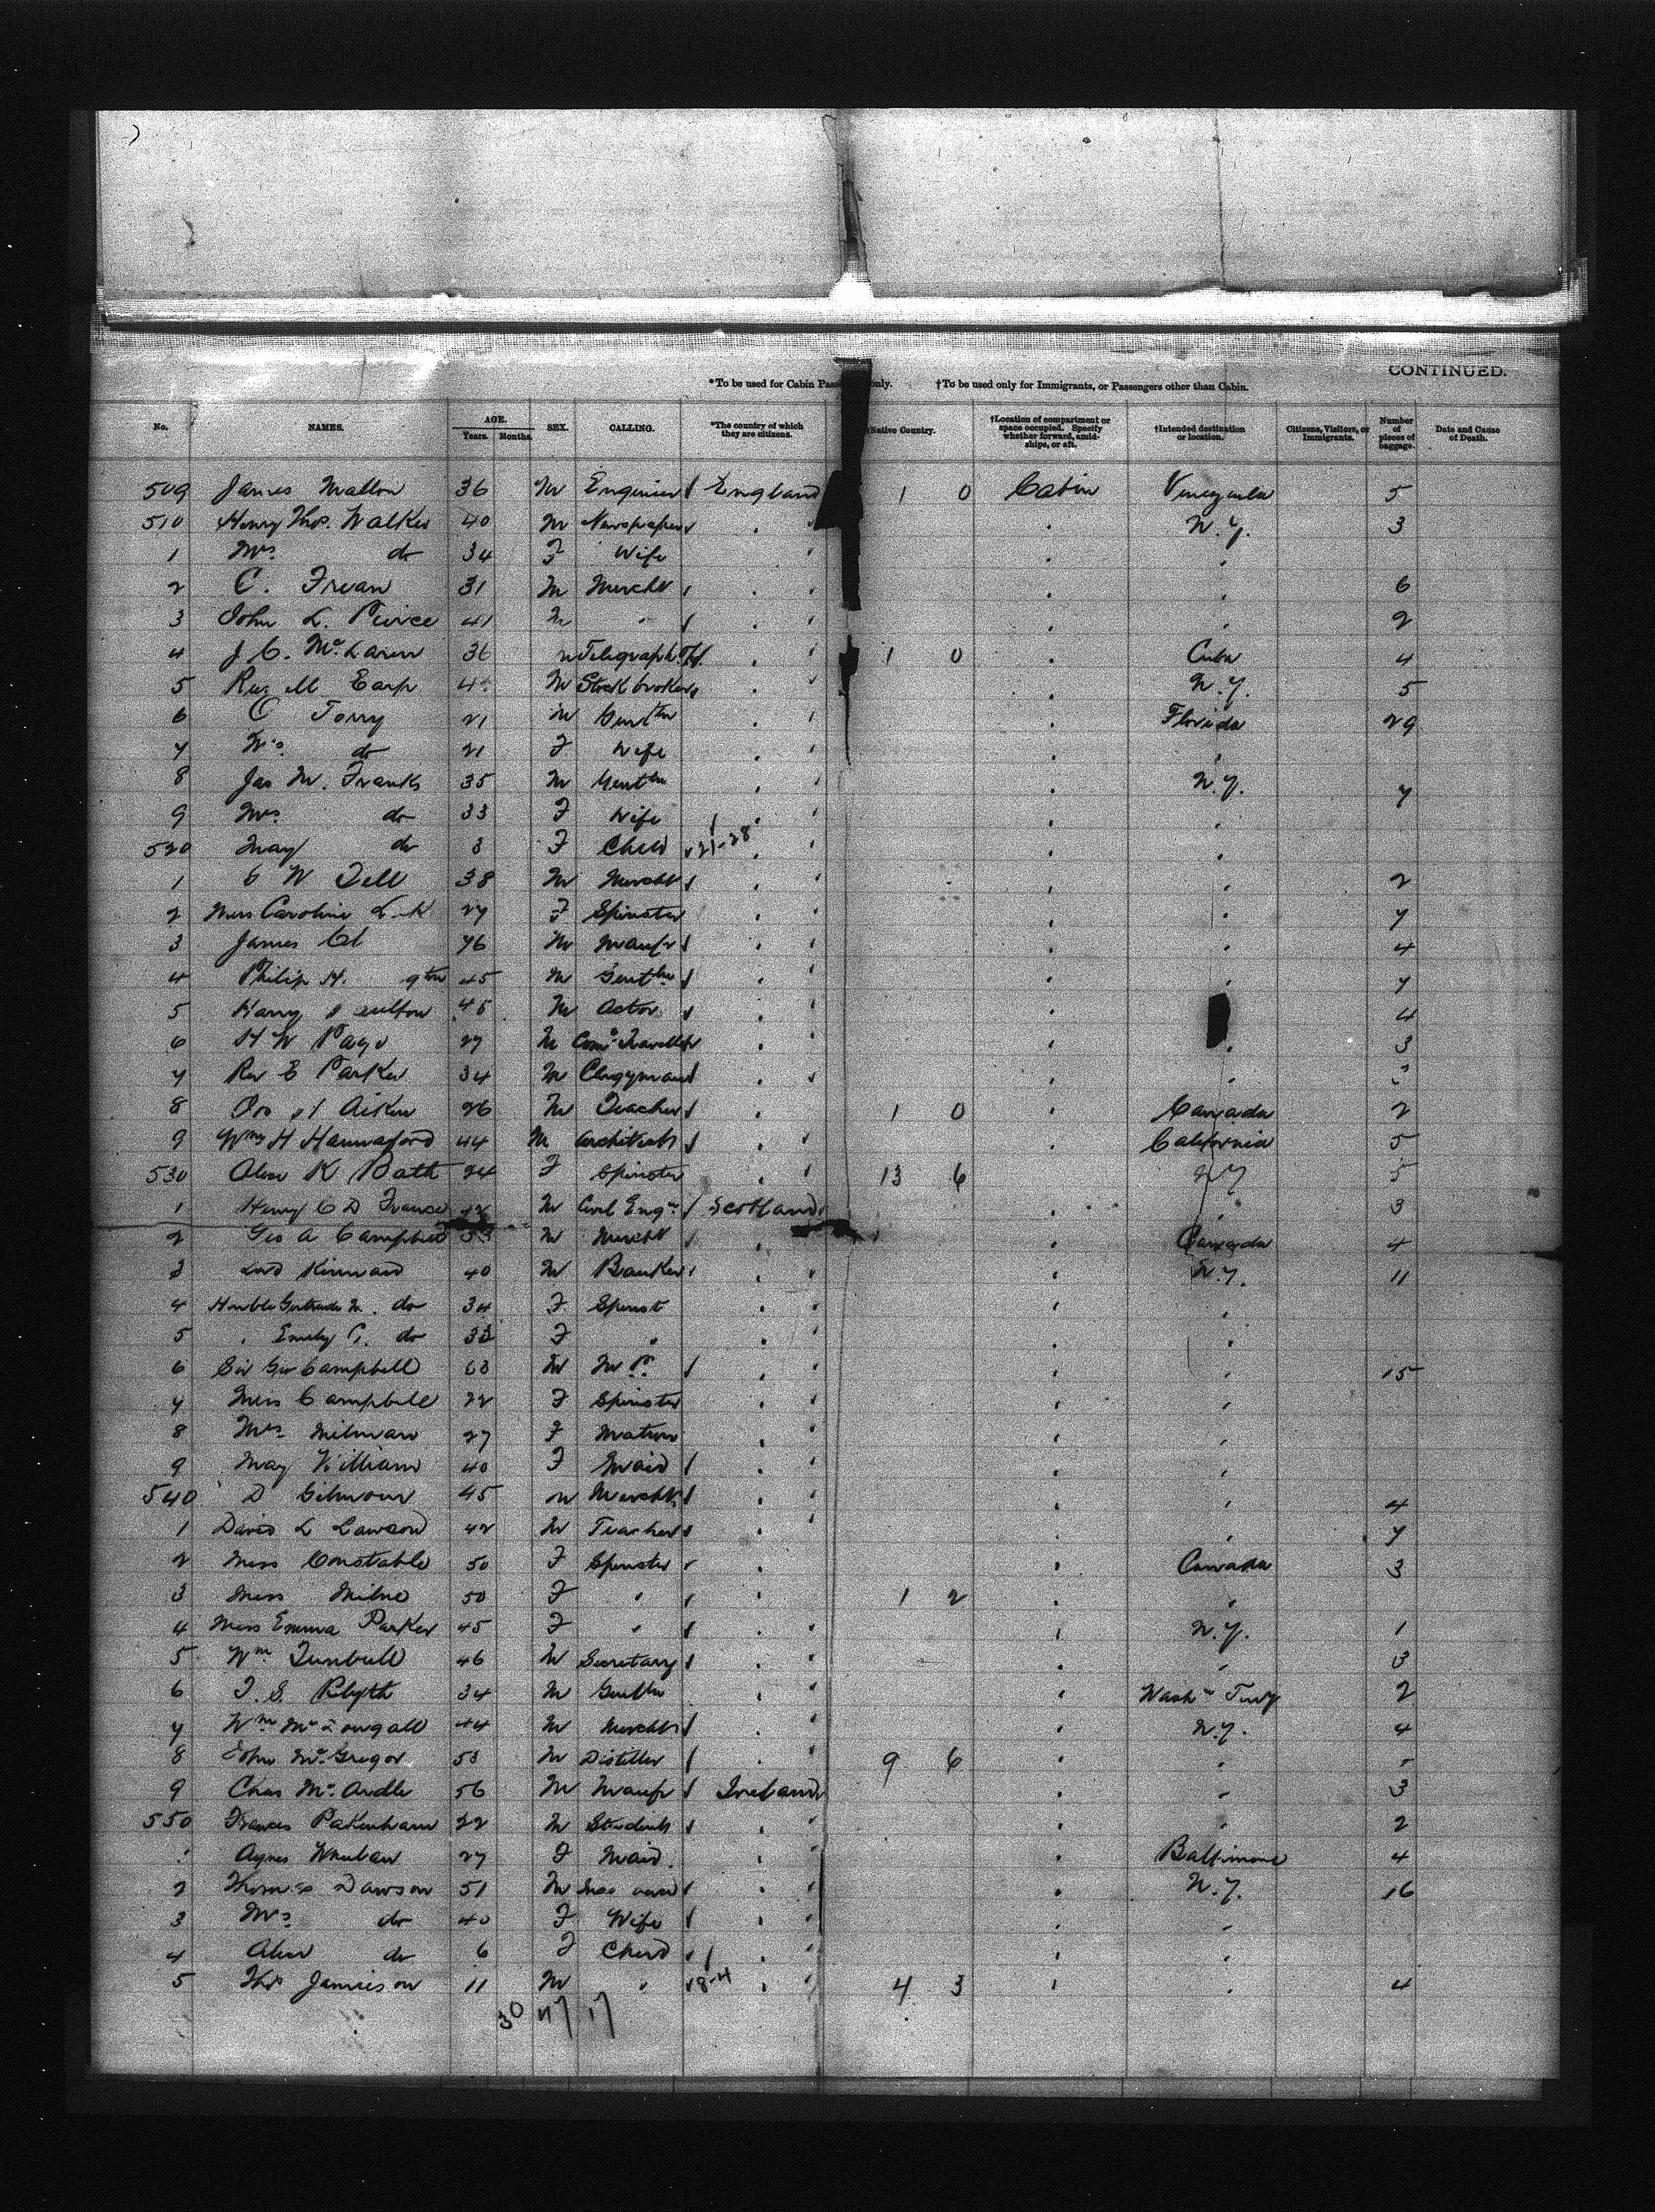 CONTINUED.
*To be used for Cabin Passengers only. †To be used only for Immigrants, or Passengers other than Cabin.
No. NAMES. AGE. Years. Months. SEX. CALLING. *The country of which they are citizens. †Native Country. †Location of compartment or space occupied. Specify whether forward, amidships, or aft. †Intended destination or location. Citizens, Visitors, or Immigrants. Number of pieces of baggage. Date and Cause of Death.
509 James Mallon 36 M Engineer England 1 0 Cabin Venezuela 5
510 Henry Thos. Walker 40 M Newspaper " " " N.Y. 3
1 Mrs do 34 F Wife " " " "
2 C. 31 M Mercht " " " " 6
3 John L. Peirce 41 M " " " " " 2
4 J. C. McLaren 36 Telegraph " " 1 0 " Cuba 4
5 Earp M Stockbroker " " " N.Y. 5
6 C Torry 21 M Gentln " " " Florida 29
7 Mrs do 21 F Wife " " " "
8 Jas M. Franks 35 M Gentln " " " N.Y. 7
9 Mrs do 33 F Wife " " "
520 May do 3 F Child 21-28 " " "
1 W Tell 38 M Mercht " " " " 2
2 Miss Caroline 27 F Spinster " " " " 7
3 James 76 M Manfr " " " " 4
4 Philip H. gton 45 M Gentln " " " " 7
5 Harry 45 M Actor " " " 4
6 H W Page 27 M Coml Traveller " " " 3
7 Rev E Parker 34 M Clergyman " " " "
8 Aiken 26 M Teacher " 1 0 " Canada 2
9 Wm H Hannaford 44 M Architect " " " California 5
530 Alice K Bath 24 F Spinster " " 13 6 " N Y 5
1 Henry C D France M Civil Engr Scotland " " 3
2 Geo A Campbell 33 M Mercht " " Canada 4
3 Lord Kinnaird 40 M Banker " " " N.Y. 11
4 Honble Gertrude M. do 34 F Spinst " " " "
5 " Emily C. do 33 F " " " " "
6 Sir Geo Campbell 63 M M.P. " " " " 15
7 Miss Campbell 22 F Spinster " " " "
8 Mrs Milman 27 F Matron " " " "
9 May William 40 F Maid " " " "
540 D Gilmour 45 M Mercht " " " " 4
1 David L Lawson 42 M Teacher " " " " 7
2 Miss Constable 50 F Spinster " " Canada 3
3 Miss Milne 50 F " " 1 2 " "
4 Miss Emma Parker 45 F " " " " N.Y. 1
5 Wm Turnbull 46 M Secretary " " " " 3
6 T. S. Blyth 34 M Gentln " " " Washn Terry 2
7 Wm McDougall 44 M Mercht " " " N.Y. 4
8 John McGregor 53 M Distiller " " 9 6 " " 5
9 Chas McArdle 56 M Manfr Ireland " " 3
550 Frances Pakenham 22 M Student " " " " 2
1 Agnes 27 F Maid. " " " Baltimore 4
2 Thomas Dawson 51 M " " " N.Y. 16
3 Mrs do 40 F Wife " " " "
4 Alice do 6 F Child " " "
5 Thos Jamieson 11 M " 8-4 " " 4 3 " " 4
30 47 17